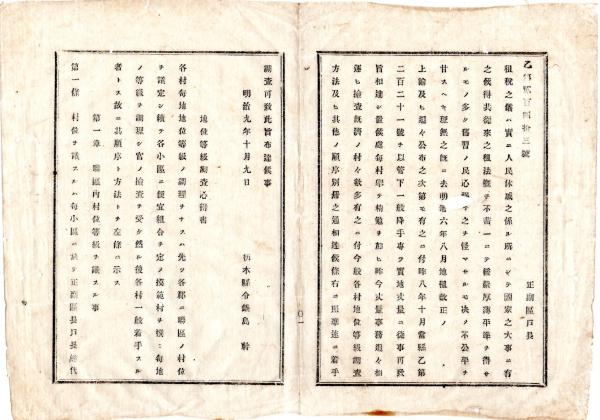 乙第貳百四拾三號
正副區戸長
租税之儀ハ實ニ人民休戚之係ル所ニシテ國家之大事ニ有
之候得共從來之租法概テ不齊一ニシテ緩嚴厚薄平準ヲ得サ
ルモノ多ク舊習ノ民心
之ヲ怪マサルモ決シ不公平ヲ
甘スヘキ理無之既ニ去明治六年八月地租改正ノ
上諭及ヒ追々公布之次第モ有之ニ付昨八年十月當縣乙第
二百二十一號ヲ以管下一般降手専ラ實地丈量ニ從事可致
旨相達シ置候處毎村擧テ精勉ヲ加ヒ昨今丈量事務追々相
運ヒ檢査既濟ノ村々數多有之ニ付今般各村地位等級調査
方法及ヒ其他ノ順序別冊之通相達候條右ニ照準速ニ着手
調査可致此旨布達候事
明治九年十月九日
栃木縣令鍋島 幹
地位等級調査心得書
各村毎地地位等級ノ調理ヲナスハ先ツ各郡ニ聯區ノ村位
ヲ議定シ續テ各小區ニ便宜組合ヲ定メ模範村ヲ撰ミ毎地
ノ等級ヲ調理シ官ノ檢査ヲ受ケ然ル後各村一般着手スル
者トス故ニ其順序ト方法トヲ左條ニ示ス
第一章 聯區内村位等級ヲ議スル事
第一條 村位ヲ議スルハ毎小區ニ於テ正副區長戸長總代